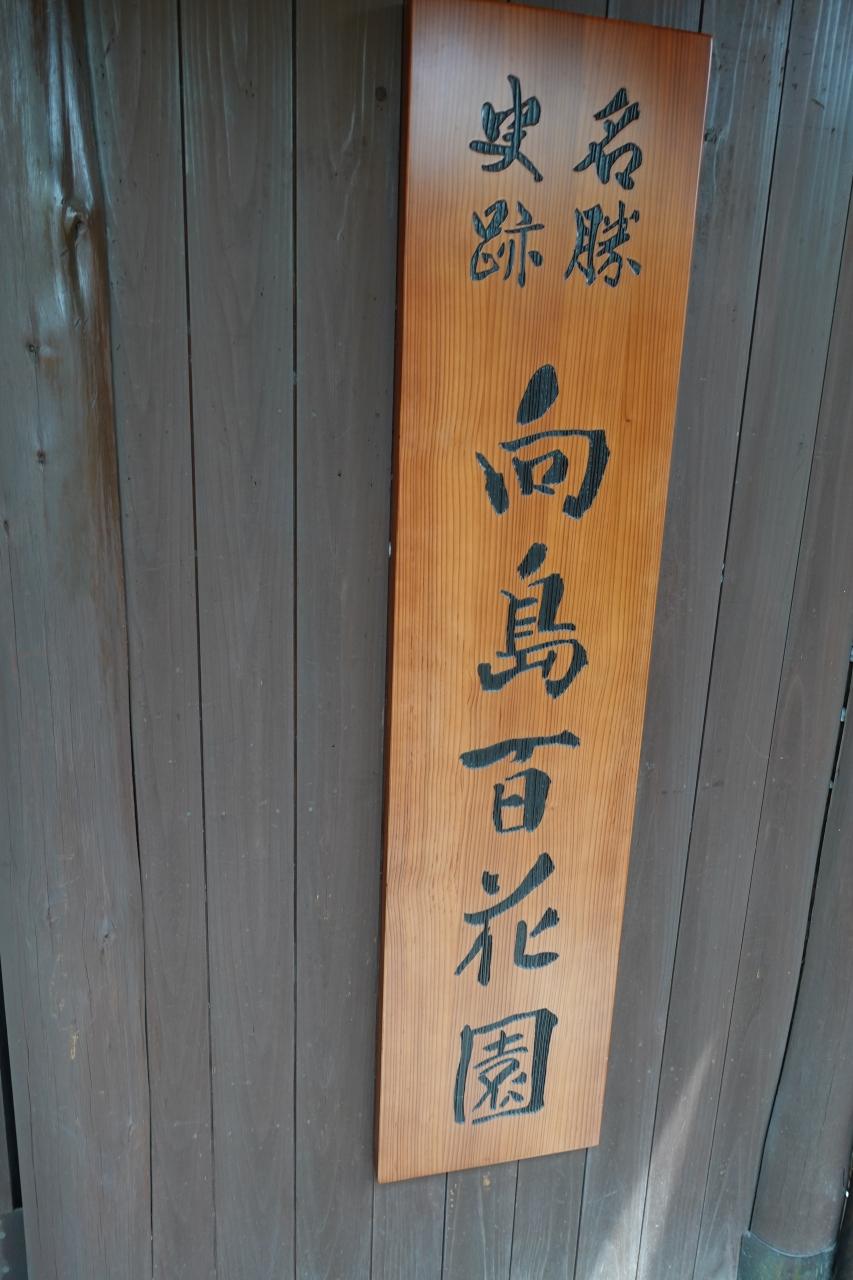 名勝
史跡
向島百花園